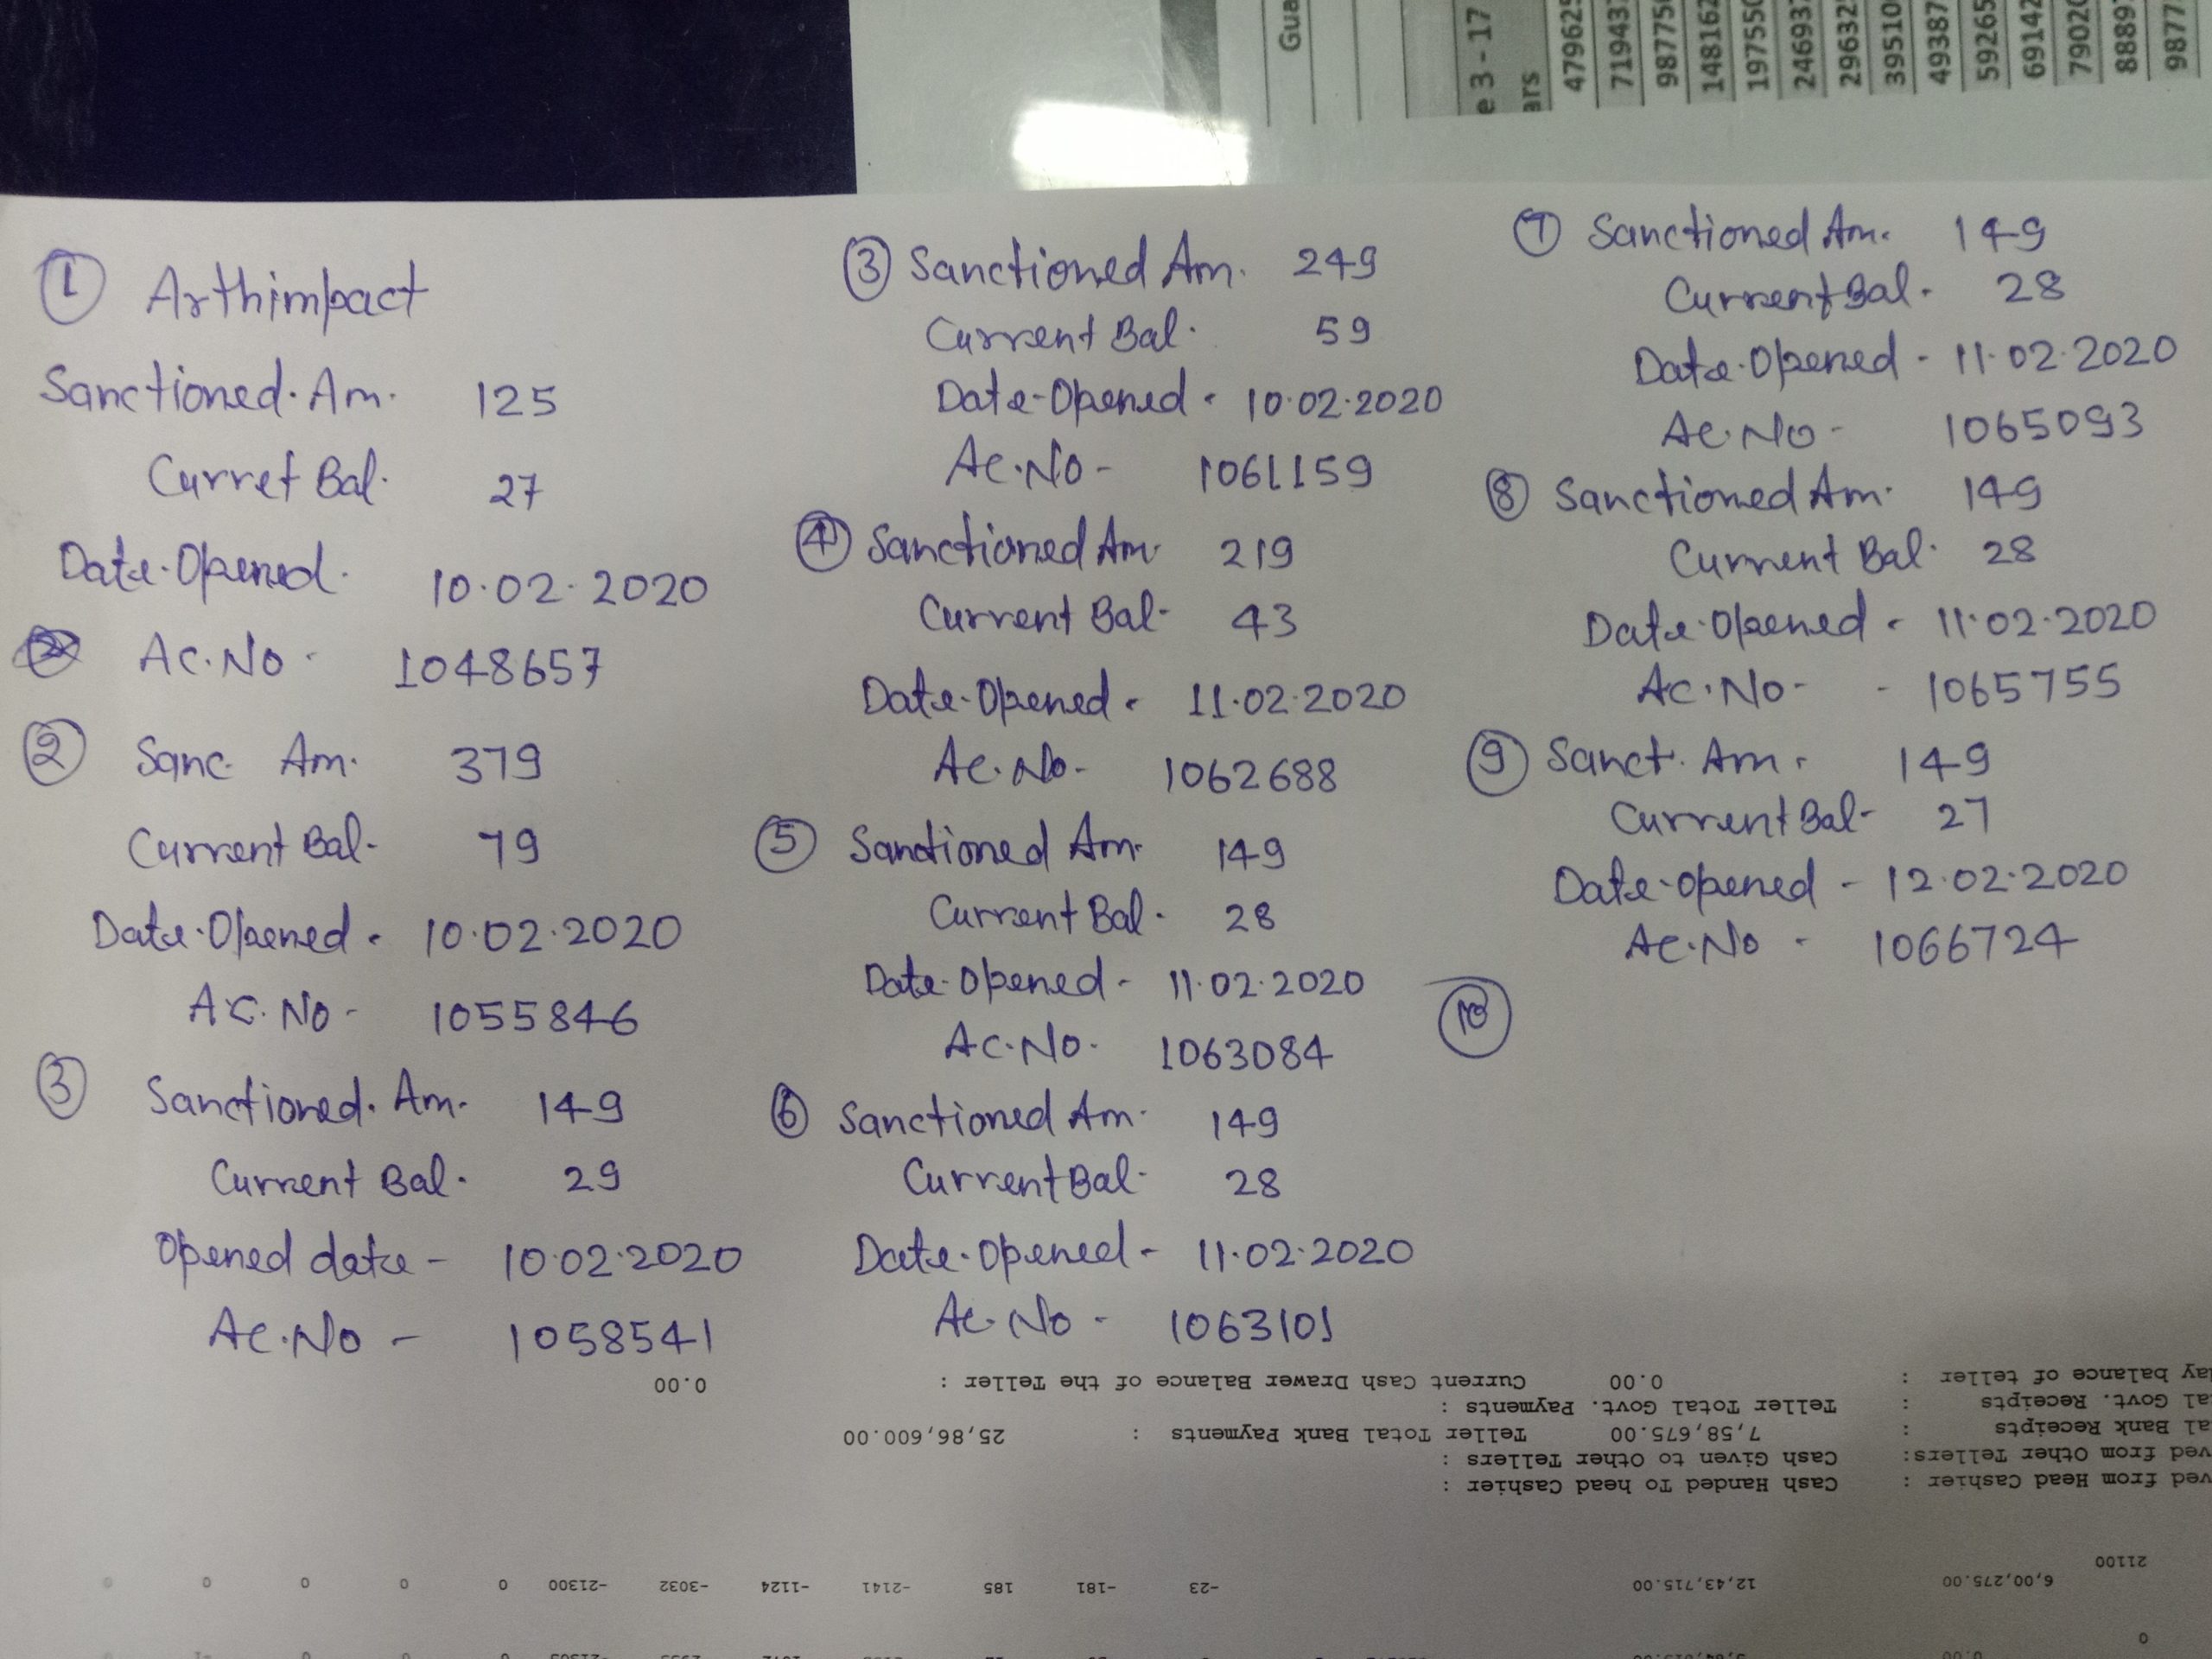 ① Arthimpact
Sanctioned. Am. 125
Curret Bal. 27
Date. Opened. 10.02.2020
Ac. No - 1048657
② Sanc. Am. 379
Current Bal- 79
Date. Opened - 10.02.2020
A.C. No - 1055846
③ Sanctioned. Am- 149
Current Bal. 29
Opened date - 10.02.2020
Ac. No - 1058541
③ Sanctioned Am. 249
Current Bal. 59
Date-Opened - 10.02.2020
Ac. No - 1061159
④ Sanctioned Am 219
Current Bal- 43
Date-Opened - 11.02.2020
Ac. No- 1062688
⑤ Sanctioned Am. 149
Current Bal- 28
Date-Opened - 11.02.2020
Ac. No. 1063084
⑥ Sanctioned Am. 149
Current Bal- 28
Date-Opened - 11.02.2020
Ac. No - 1063101
⑦ Sanctioned Am. 149
Current Bal. 28
Date-Opened - 11.02.2020
Ac. No - 1065093
⑧ Sanctioned Am. 149
Current Bal. 28
Date-Opened - 11.02.2020
Ac. No- - 1065755
⑨ Sanct. Am. 149
Current Bal- 27
Date-opened - 12.02.2020
Ac. No - 1066724
⑩
Gua
e 3 - 17
ars
47962
71943
987750
148162
197550
246937
29632
39510
49387
59265
69142
79020
8889
9877
0
12,43,715.00 -23 -181 185 -2141 -1124 -3032 -21300 0 0 0 0
6,00,275.00
21100
ved from Head Cashier : Cash Handed To head Cashier :
ved from Other Tellers: Cash Given to Other Tellers :
al Bank Receipts : 7,58,675.00 Teller Total Bank Payments : 25,86,600.00
al Govt. Receipts : Teller Total Govt. Payments :
ay balance of teller : 0.00 Current Cash Drawer Balance of the Teller : 0.00